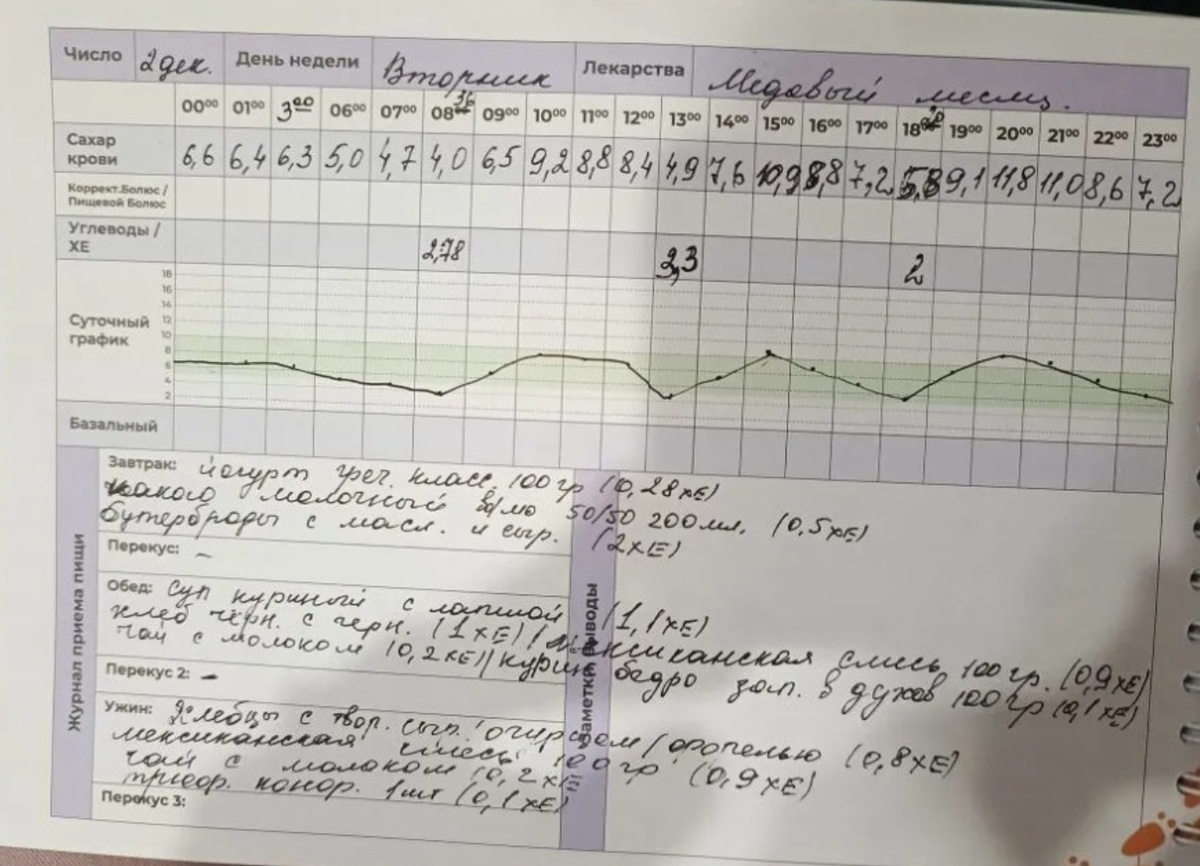 Число 2 дек. День недели Вторник Лекарства Медовый месяц.
00⁰⁰ 01⁰⁰ 3⁰⁰ 06⁰⁰ 07⁰⁰ 08³⁶ 09⁰⁰ 10⁰⁰ 11⁰⁰ 12⁰⁰ 13⁰⁰ 14⁰⁰ 15⁰⁰ 16⁰⁰ 17⁰⁰ 18 19⁰⁰ 20⁰⁰ 21⁰⁰ 22⁰⁰ 23⁰⁰
Сахар
крови
6,6 6,4 6,3 5,0 4,7 4,0 6,5 9,2 8,8 8,4 4,9 7,6 10,9 8,8 7,2 5,8 9,1 11,8 11,0 8,6 7,2
Коррект.Болюс /
Пищевой Болюс
Углеводы /
ХЕ
2,78 3,3 2
Суточный
график
18
16
14
12
10
8
6
4
2
Базальный
Журнал приема пищи
Завтрак: йогурт греч. класс. 100 гр (0,28 хЕ)
какао молочный во/мо 50/50 200 мл. (0,5 хЕ)
бутерброды с масл. и сыр. (2 хЕ)
Перекус: –
Обед: Суп куриный с лапшой (1,1 хЕ)
хлеб чёрн. с черн. (1 хЕ) / мексиканская смесь 100 гр. (0,9 хЕ)
чай с молоком (0,2 хЕ) / курин бедро зап. в духов 100 гр (0,1 хЕ)
Перекус 2: –
Заметки, выводы
Ужин: Хлебцы с твор. сыр. огурцом / форелью (0,8 хЕ)
мексиканская смесь 100 гр (0,9 хЕ)
чай с молоком (0,2 хЕ
1 шт (0,1 хЕ)
Перекус 3: